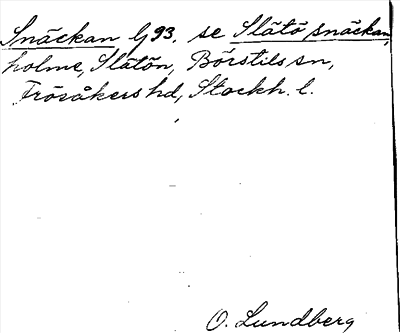 Snäckan G 93. se Slätö snäckan,
holme, Slätön, Börstils sn,
Frösåkers hd, Stockh. l.
O. Lundberg